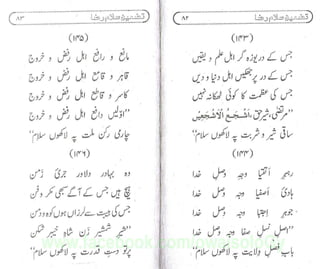 ۸۲ تضمین سلام رضا
(۱۴۳)
جس کے در یوزہ گر اہل علم و یقیں
جس کے در پر جھکیں اہل دنیا و دیں
جس کی عظمت کا کوئی ٹھکانہ نہیں
”مرتضیٰ شیر حق، اَشْجَعُ الْاَشْجَعِیْن
ساقی شیر و شربت پہ لاکھوں سلام“
(۱۴۴)
رہبر اتقیا وجہ وصل خدا
ہادی اصفیا وجہ وصل خدا
جوہر اجتبا وجہ وصل خدا
”اصل نسل صفا وجہ وصل خدا
باب فصل ولایت پہ لاکھوں سلام“
تضمین سلام رضا ۸۳
(۱۴۵)
مانع و رافع اہل رفض و خروج
قاہر و قامع اہل رفض و خروج
کاسر و قاطع اہل رفض و خروج
”اوّلیں دافع اہل رفض و خروج
چاری رکن ملت پہ لاکھوں سلام“
(۱۴۶)
وہ بہادر دلاور جری زمن
ہیچ ہیں جس کے آگے سبھی مکر و فن
جس کی ہیبت سے لرزاں ہوں کوہ و دمن
”شیر شمشیر زن شاہ خیبر شکن
پرتو دست قدرت پہ لاکھوں سلام“